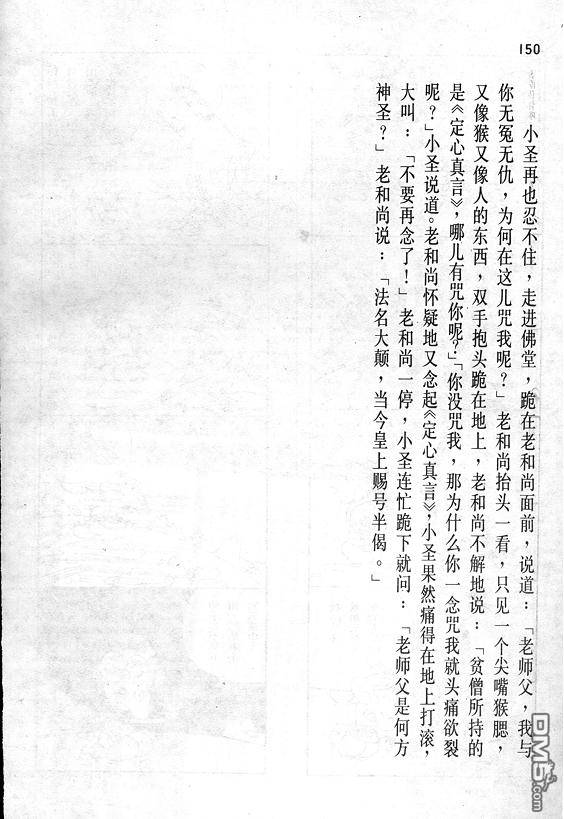 150
小圣再也忍不住，走进佛堂，跪在老和尚面前，说道：「老师父，我与
你无冤无仇，为何在这儿咒我呢？」老和尚抬头一看，只见一个尖嘴猴腮，
又像猴又像人的东西，双手抱头跪在地上，老和尚不解地说：「贫僧所持的
是《定心真言》，哪儿有咒你呢？」「你没咒我，那为什么你一念咒我就头痛欲裂
呢？」小圣说道。老和尚怀疑地又念起《定心真言》，小圣果然痛得在地上打滚，
大叫：「不要再念了！」老和尚一停，小圣连忙跪下就问：「老师父是何方
神圣？」老和尚说：「法名大颠，当今皇上赐号半偈。」
DM5.com